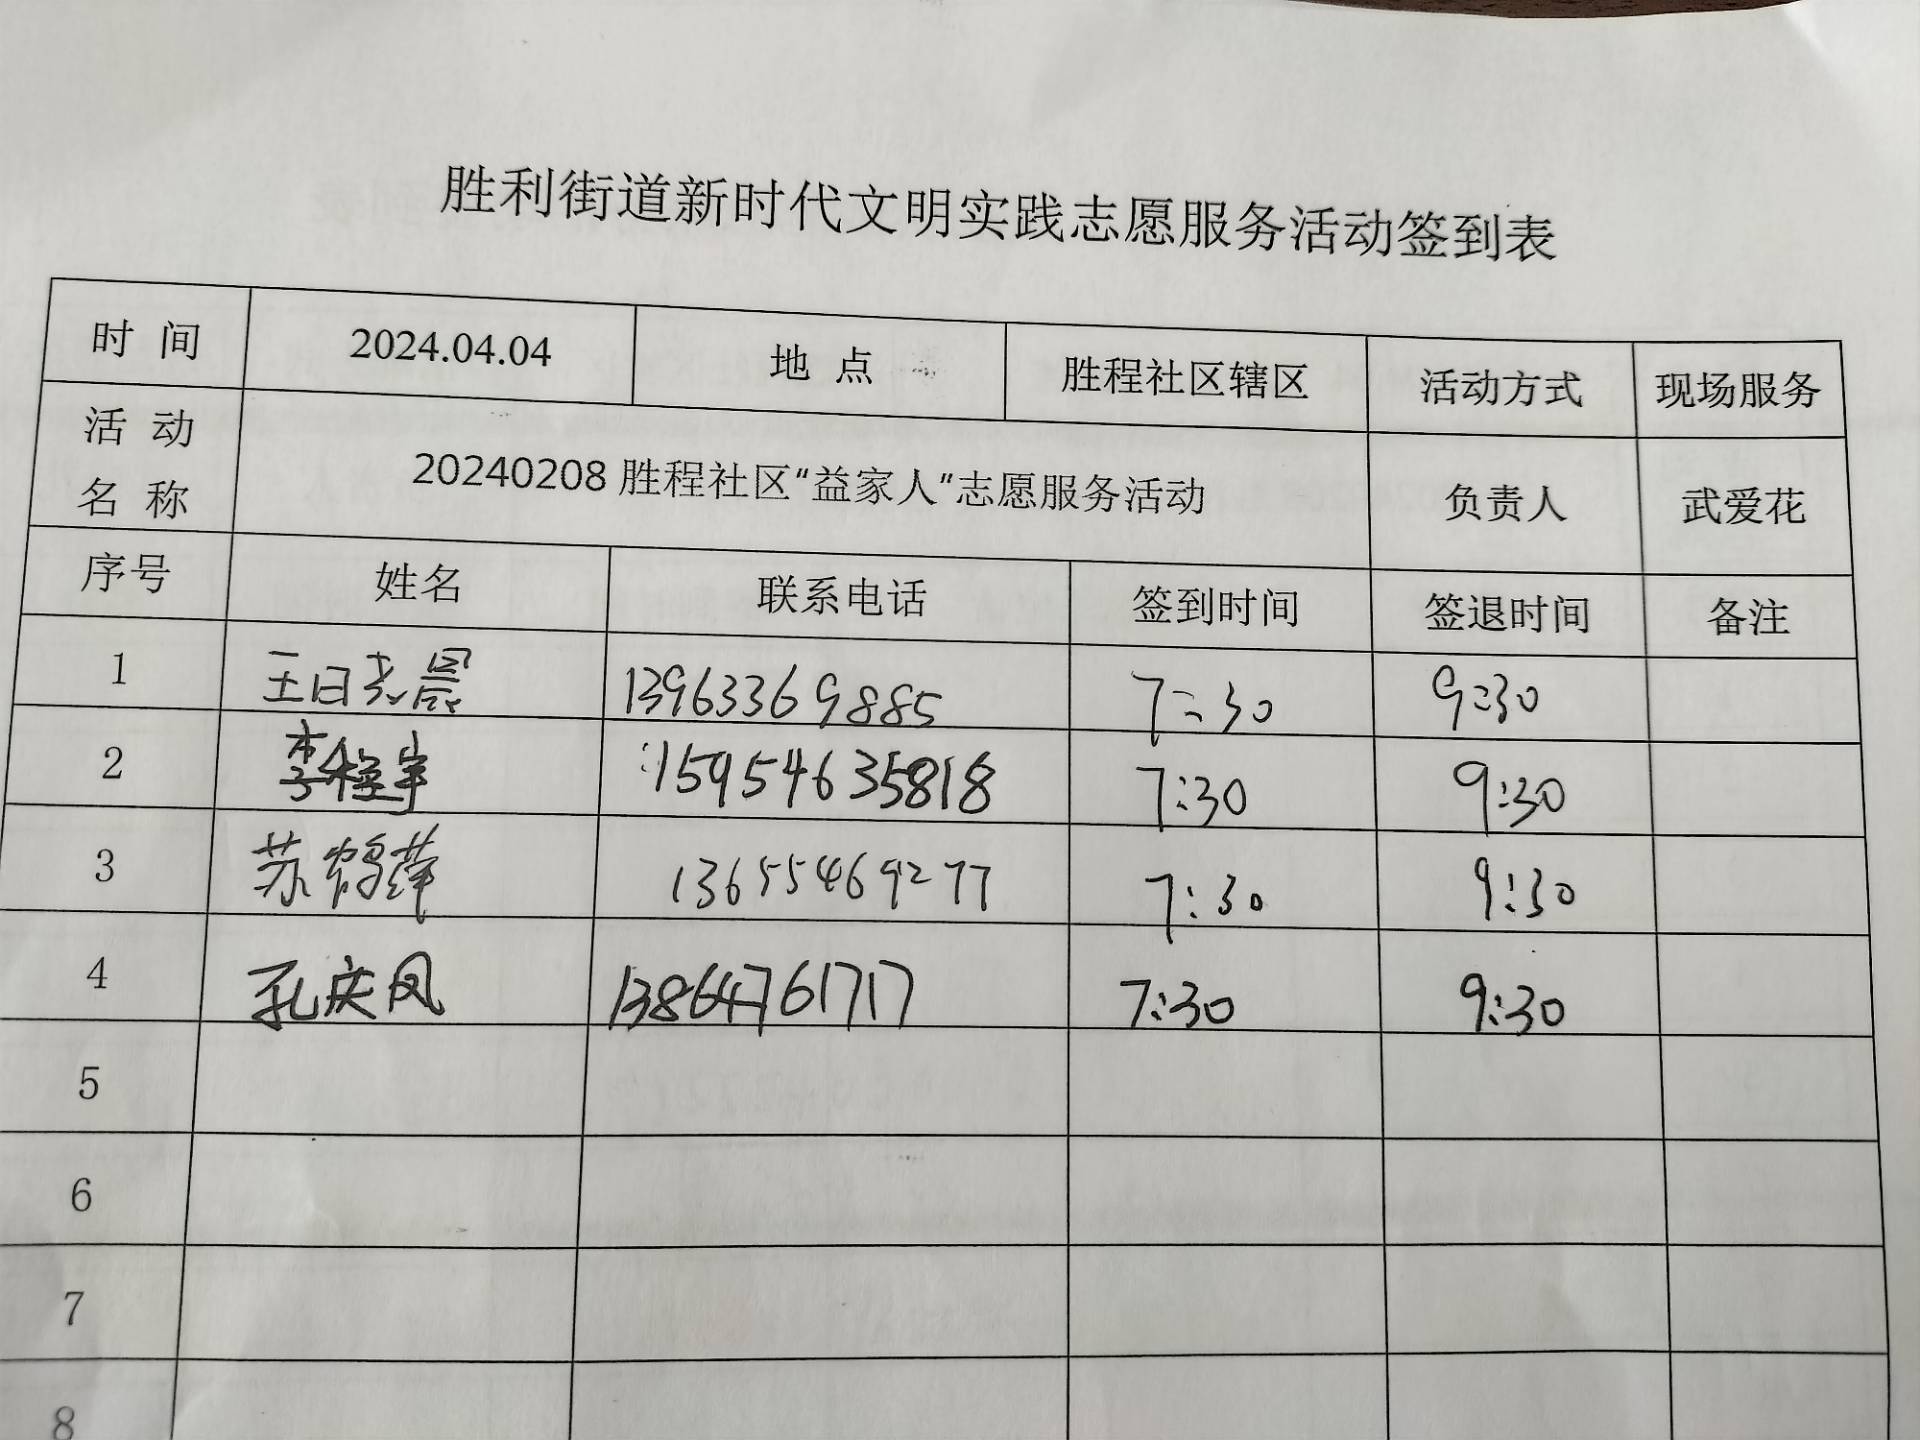 胜利街道新时代文明实践志愿服务活动签到表
时 间 2024.04.04 地 点 胜程社区辖区 活动方式 现场服务
活 动
名 称 20240208 胜程社区“益家人”志愿服务活动 负责人 武爱花
序号 姓名 联系电话 签到时间 签退时间 备注
1 王日晨 13963369885 7:30 9:30
2 李程宇 15954635818 7:30 9:30
3 苏鹤萍 13655469277 7:30 9:30
4 孔庆凤 13864761717 7:30 9:30
5
6
7
8